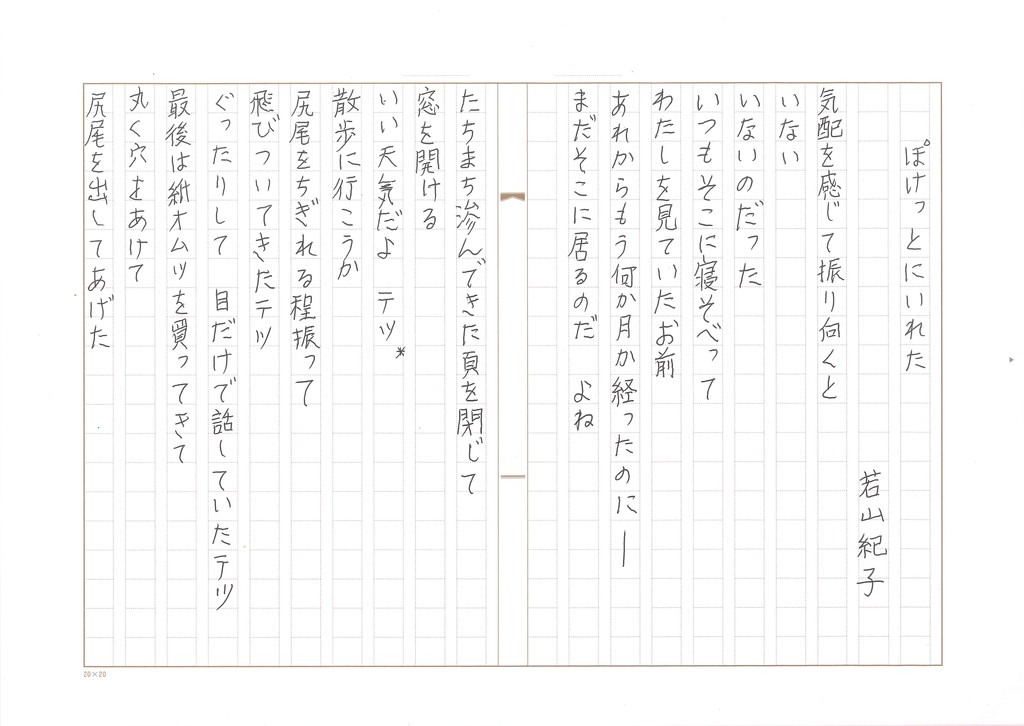 ぽけっとにいれた
若山紀子
気配を感じて振り向くと
いない
いないのだった
いつもそこに寝そべって
わたしを見ていたお前
あれからもう何か月か経ったのに―
まだそこに居るのだ　よね
たちまち滲んできた頁を閉じて
窓を開ける
いい天気だよ　テツ*
散歩に行こうか
尻尾をちぎれる程振って
飛びついてきたテツ
ぐったりして　目だけで話していたテツ
最後は紙オムツを買ってきて
丸く穴をあけて
尻尾を出してあげた
20×20